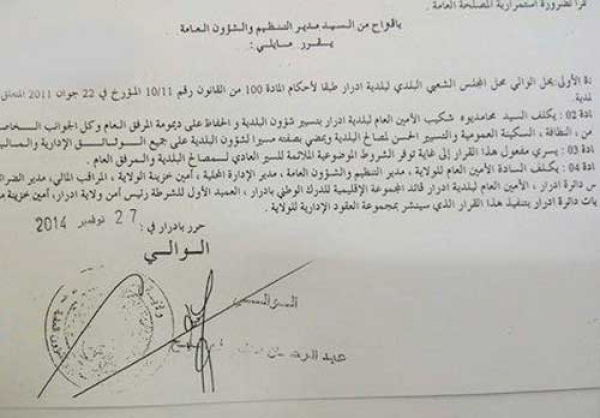 نظرا لضرورة استمرارية المصلحة العامة.
باقتراح من السيد مدير التنظيم والشؤون العامة
يقرر مايلي:
دة الأولى: يحل الوالي محل المجلس الشعبي البلدي لبلدية ادرار طبقا لأحكام المادة 100 من القانون رقم 10/11 المؤرخ في 22 جوان 2011 المتعلق
لدية
ادة 02: يكلف السيد محامديوه شكيب الأمين العام لبلدية ادرار بتسيير شؤون البلدية و الحفاظ على ديمومة المرفق العام وكل الجوانب الخاصة
من ، النظافة، السكينة العمومية والتسيير الحسن لمصالح البلدية ويمضي بصفته مسيرا لشؤون البلدية على جميع الوثائق الإدارية والمالية
ادة 03: يسري مفعول هذا القرار إلى غاية توفر الشروط الموضوعية الملائمة للسير العادي لمصالح البلدية والمرفق العام.
ادة 04: يكلف السادة الأمين العام للولاية ، مدير التنظيم والشؤون العامة ، مدير الإدارة المحلية ، أمين خزينة الولاية ، المراقب المالي، مدير الضرائب
س دائرة ادرار ، الأمين العام لبلدية ادرار قائد المجموعة الإقليمية للدرك الوطني بادرار ، العميد الأول للشرطة رئيس أمن ولاية ادرار، أمين خزينة
يات دائرة ادرار بتنفيذ هذا القرار الذي سينشر بمجموعة العقود الإدارية للولاية.
حرر بادرار في: 27 نوفمبر 2014
الوالي
الوالي